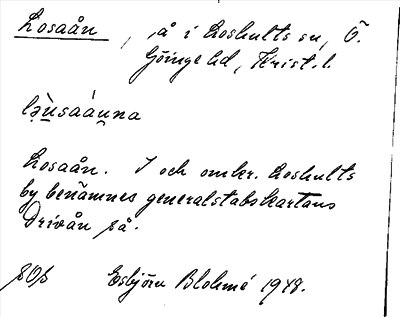 Losaån, å i Loshults sn, Ö.
Göinge hd, Krist. l.
lə̀u̠saáu̠na
Losaån. I och omkr. Loshults
by benämnes generalstabskartans
Drivån så.
Esbjörn Blohmé 1948.